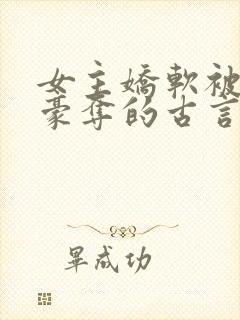 女主嬌軟被
豪奪的古言
畢成功